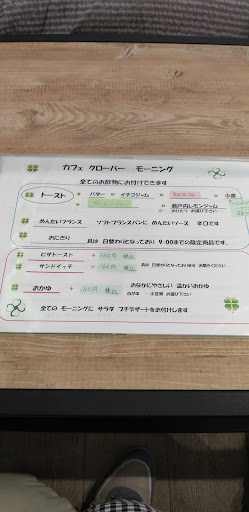 カフェ クローバー モーニング
全てのお飲物にお付けできます
トースト ・バター ・イチゴジャム ・小倉
・瀬戸内レモンジャム
めんたいフランス ソフトフランスパンに めんたいソース 辛口です
おにぎり 具は 日替わりとなっており 9:00までの限定商品です。
ピザトースト + 150円 税込
サンドイッチ + 税込 具は 日替わりとなっております
おかゆ + 税込 おなかにやさしい 温かいおかゆ
全ての モーニングに サラダ プチデザートをお付けします